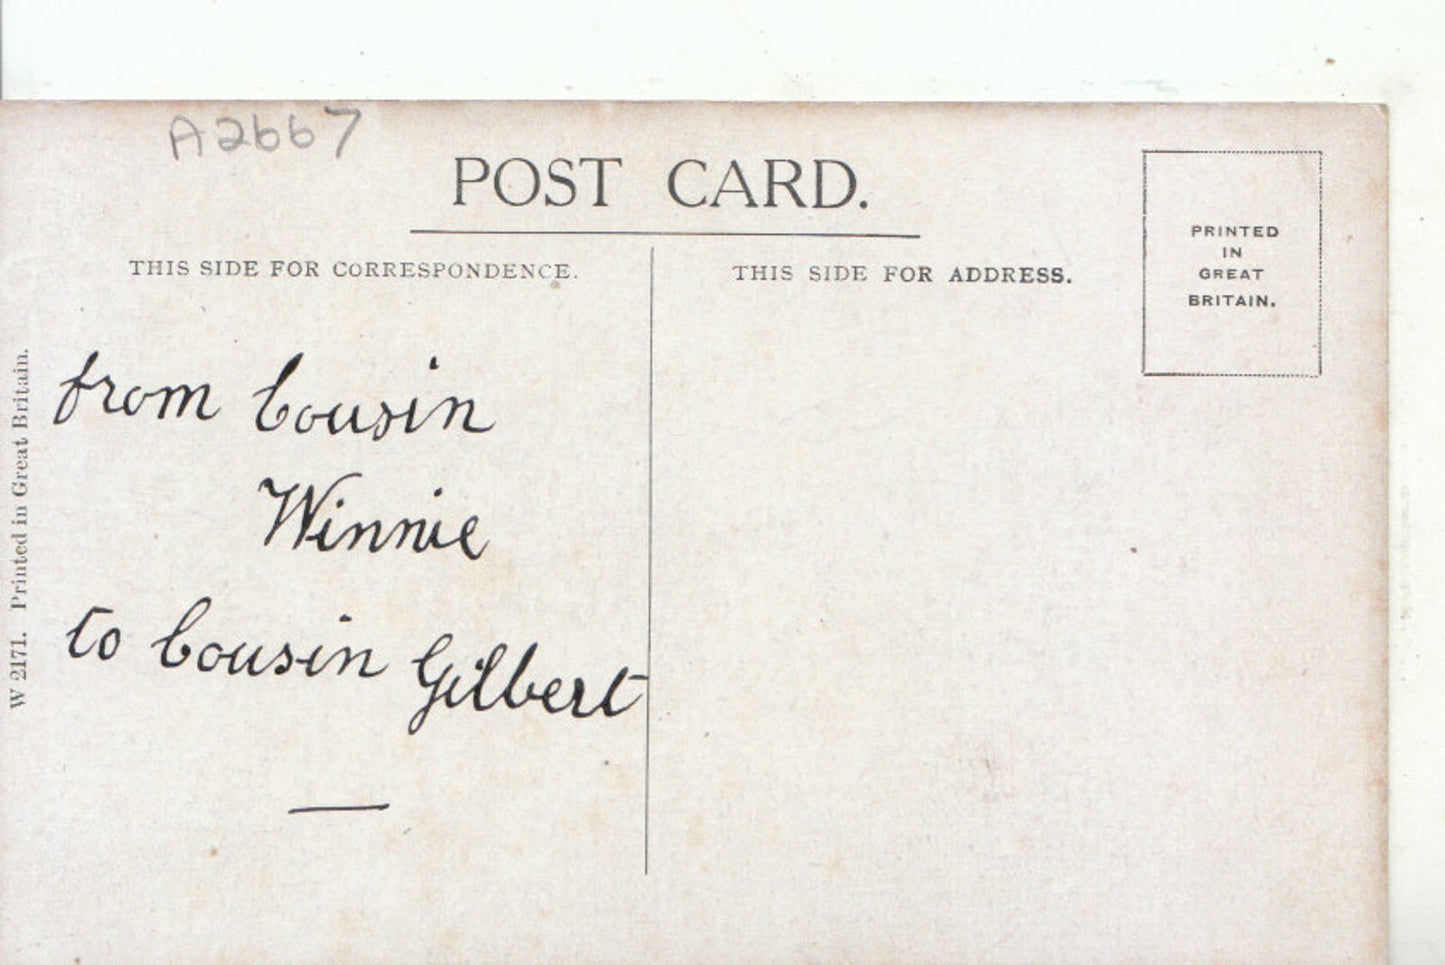 A2667
POST CARD.
THIS SIDE FOR CORRESPONDENCE.
THIS SIDE FOR ADDRESS.
PRINTED
IN
GREAT
BRITAIN.
from Cousin
Winnie
to Cousin Gilbert
W 2171. Printed in Great Britain.